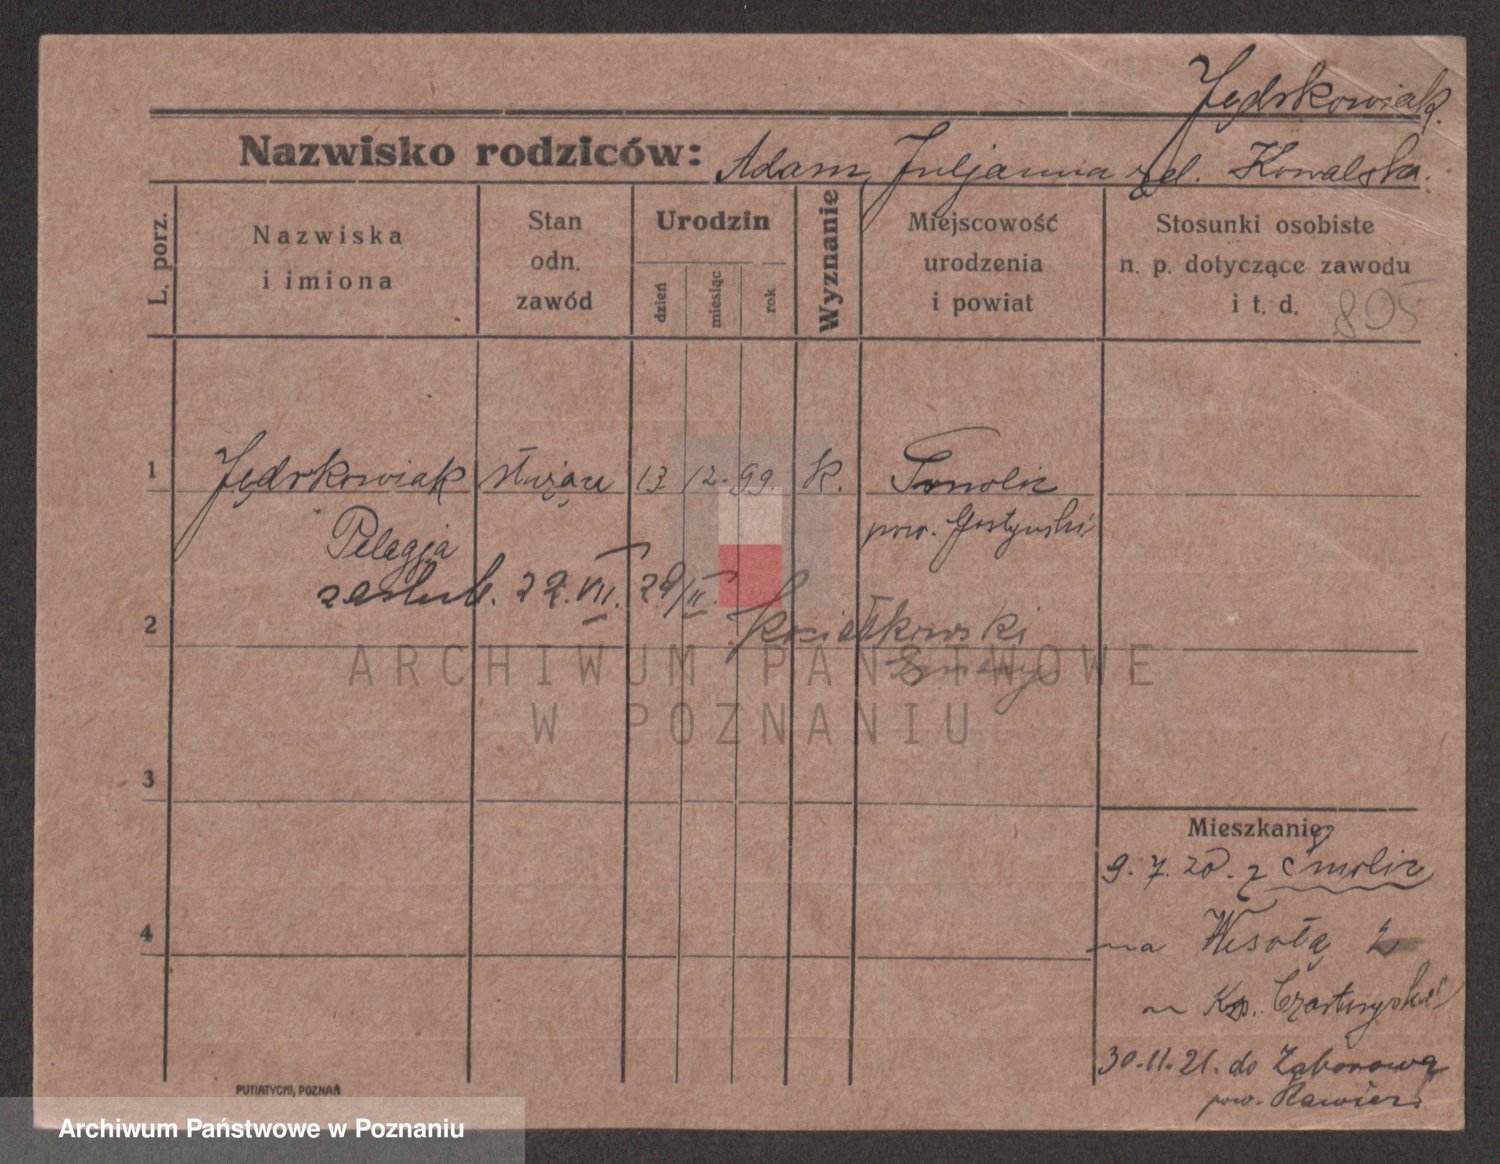 Jędrkowiak.
Nazwisko rodziców: Adam, Juljanna rd. Kowalska.
L. porz.
Nazwiska
i imiona
Stan
odn.
zawód
Urodzin
dzień
miesiąc
rok
Wyznanie
Miejscowość
urodzenia
i powiat
Stosunki osobiste
n. p. dotyczące zawodu
i t. d. 805
1 Jędrkowiak służąca 13 12. 99. K. Smolic
Pelagja pow. Gostyński
zaślub. 22.VII. 29/II.
2 Kosiałkowski
ARCHIWUM PAŃSTWOWE
W POZNANIU
3
Mieszkanie:
9. 7. 20. z Smolic
4
na Wesołą 2
Ks. Czartoryski
30.11.21. do Zaborowa
pow. Rawicz.
PUTIATYCKI, POZNAŃ
Archiwum Państwowe w Poznaniu